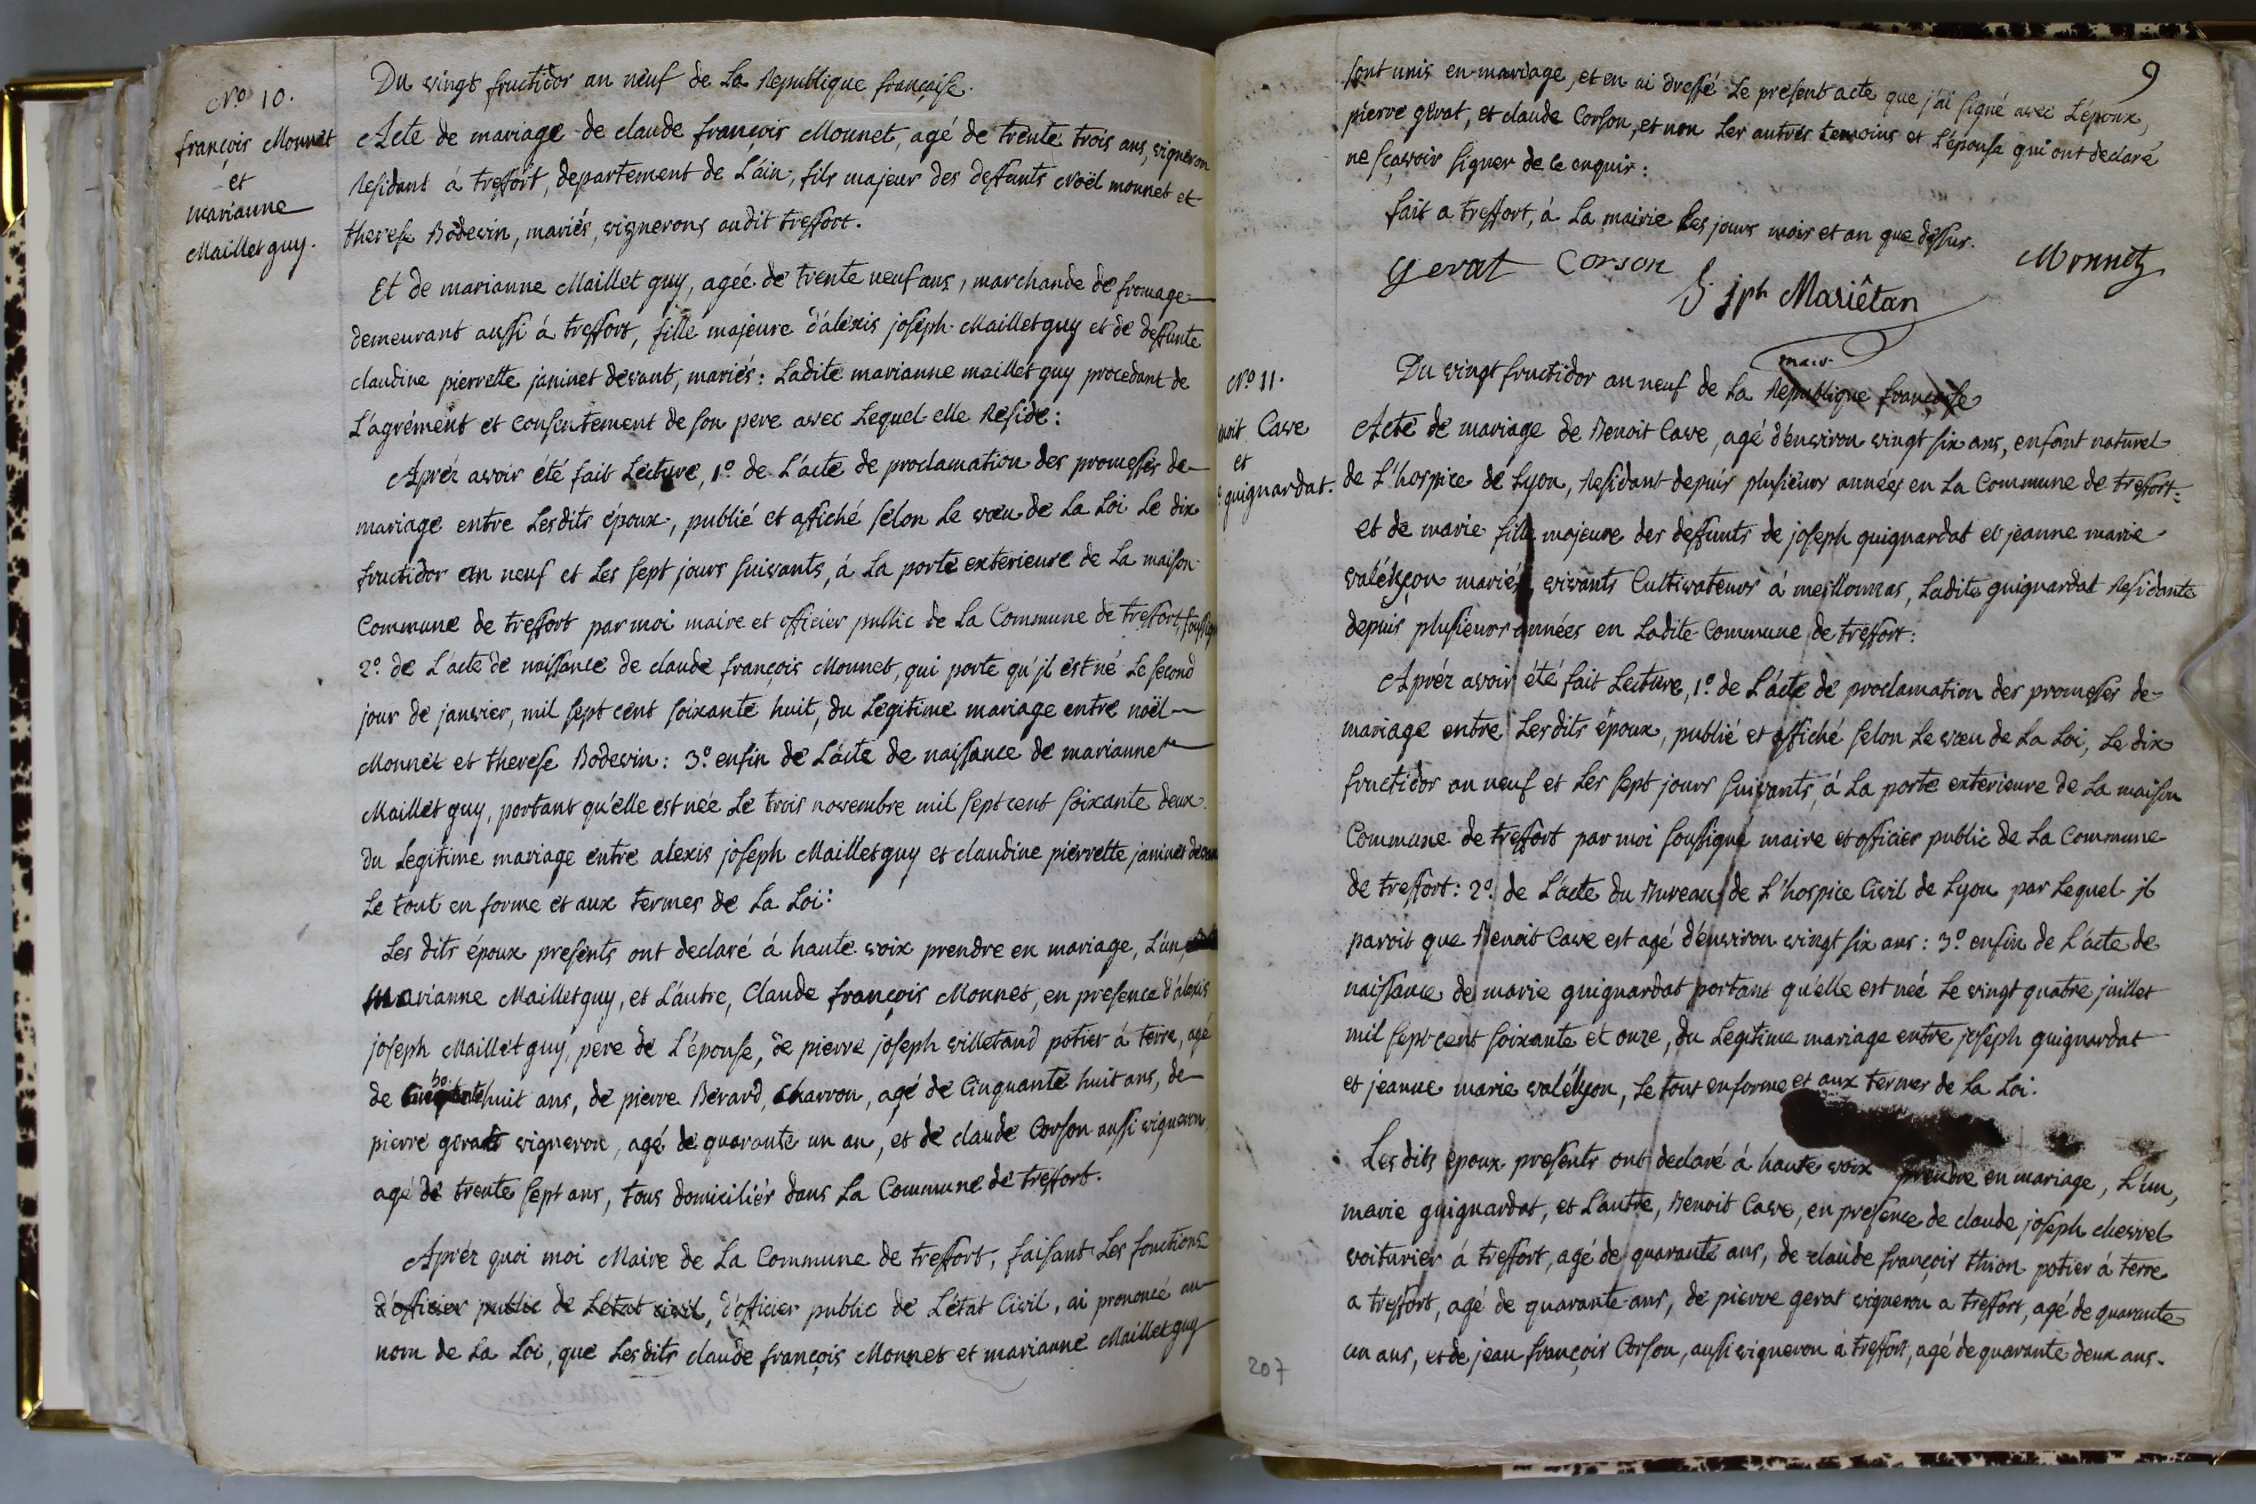 N.o 10.
françois Monnet
et
marianne
Maillet guy.
Du vingt fructidor an neuf de La Republique françaiſe.
Acte de mariage de claude françois Monnet, agé de trente trois ans, vigneron
Reſidant á treffort, departement de L'ain, fils majeur des deffunts Noël monnet et
thereſe Bodevin, mariés, vignerons audit treffort.
Et de marianne Maillet guy, agée de trente neuf ans, marchande de fromage
demeurant auſſi á treffort, fille majeure d'aléxis joſeph Maillet guy et de deffunte
claudine pierrette janinet devant, mariés: Ladite marianne maillet guy procedant de
L'agrément et conſentement de ſon pere avec Lequel elle Reſide:
Apréz avoir été fait Lecture, 1.o de L'acte de proclamation des promeſſes de
mariage entre Lesdits époux, publié et affiché ſélon Le vœu de La Loi Le dix
fructidor an neuf et Les ſept jours ſuivants, á La porte exterieure de La maiſon
Commune de treffort par moi maire et officier public de La Commune de treffort,
2.o de L'acte de naiſſance de claude françois Monnet, qui porte qu'jl est né Le ſecond
jour de janvier, mil ſept cent ſoixante huit, du Légitime mariage entre noël
Monnet et thereſe Bodevin: 3.o enfin de L'acte de naiſſance de marianne
Maillet guy, portant qu'elle est née Le trois novembre mil ſept cent ſoixante deux
du Legitime mariage entre alexis joſeph Maillet guy et claudine pierrette janinet
Le tout en forme et aux termes de La Loi:
Les dits époux preſents ont declaré á haute voix prendre en mariage, L'un,
Marianne Maillet guy, et L'autre, Claude françois Monnet, en preſence d'alexis
joſeph Maillet guy, pere de L'épouſe, de pierre joſeph villetand potier á terre, agé
de huit ans, de pierre Berard, charron, agé de Cinquante huit ans, de
pierre gerat vigneron, agé de quarante un an, et de claude Corſon auſſi vigneron,
agé de trente ſept ans, tous domiciliés dans La Commune de treffort.
Apréz quoi moi Maire de La Commune de treffort, faiſant Les fonctions
d'officier public de L'état civil, d'officier public de L'état Civil, ai prononcé au
nom de La Loi, que Lesdits claude françois Monnet et marianne Maillet guy
9
ſont unis en mariage, et en ai dreſſé Le preſent acte que j'ai ſigné avec L'époux,
pierre gérat, et claude Corſon, et non Les autres temoins et L'épouſe qui ont declaré
ne ſçavoir ſigner de ce enquis:
fait a treffort, á La mairie Les jours mois et an que deſſus.
gerat Corson Monnet
jph Mariêtan
maire
N.o 11.
Cave
et
guignardat.
Du vingt fructidor an neuf de La Republique françaiſe
Acte de mariage de Benoit Cave, agé d'environ vingt ſix ans, enfant naturel
de L'hospice de Lyon, Reſidant depuis pluſieurs années en La Commune de treffort:
et de marie fille majeure des deffunts de joſeph guignardat et jeanne marie
mariés, vivants Cultivateurs á meillonnas, Ladite guignardat Reſidante
depuis pluſieurs années en Ladite Commune de treffort:
Apréz avoir été fait Lecture, 1.o de L'acte de proclamation des promeſſes de
mariage entre Lesdits époux, publié et affiché ſélon Le vœu de La Loi, Le dix
fructidor an neuf et Les ſept jours ſuivants, á La porte exterieure de La maiſon
Commune de treffort par moi ſouſſigné maire et officier public de La Commune
de treffort: 2.o de L'acte du Bureau de L'hospice Civil de Lyon par Lequel jl
paroit que Benoit Cave est agé d'environ vingt ſix ans: 3.o enfin de L'acte de
naiſſance de marie guignardat portant qu'elle est née Le vingt quatre juillet
mil ſept cent ſoixante et onze, du Legitime mariage entre joſeph guignardat
et jeanne marie, Le tout en forme et aux termes de La Loi:
Les dits époux preſents ont declaré á haute voix prendre en mariage, L'un,
marie guignardat, et L'autre, Benoit Cave, en preſence de claude joſeph chevrel
voiturier á treffort, agé de quarante ans, de claude françois thion potier á terre
a treffort, agé de quarante ans, de pierre gerat vigneron a treffort, agé de quarante
un ans, et de jean françois Corſon, auſſi vigneron á treffort, agé de quarante deux ans.
207